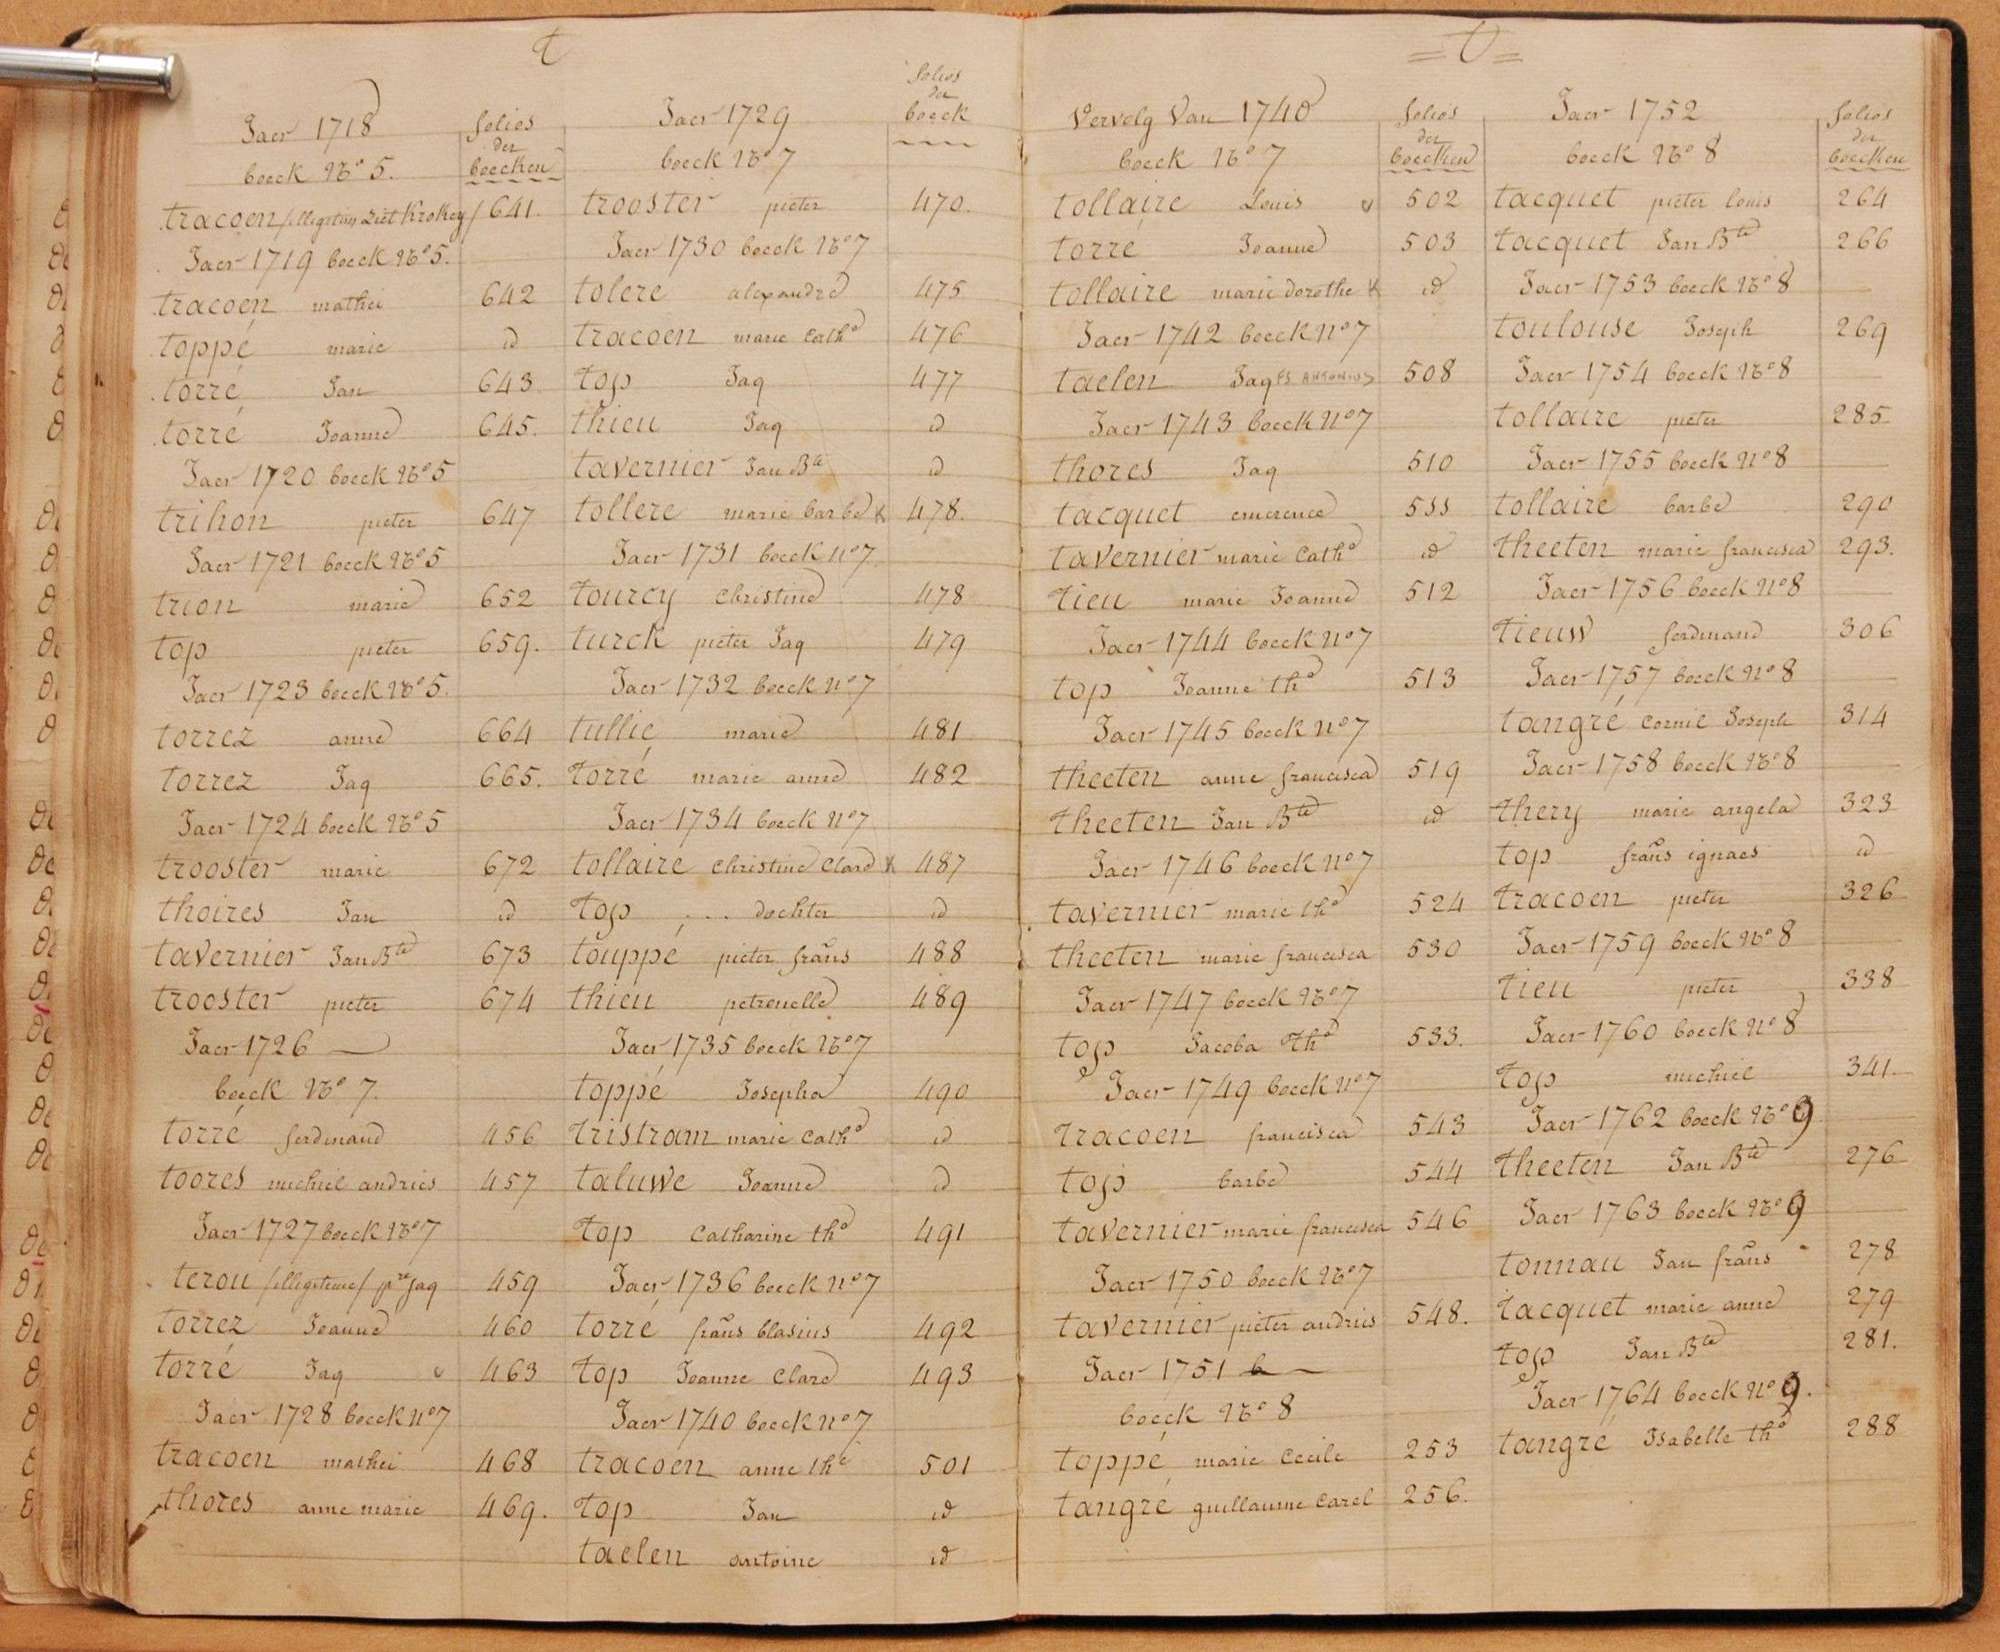 t
Jaer 1718
folios
der
boecken
boeck No 5.
tracoen /illegitim ziet Krokey/ 641.
Jaer 1719 boeck No 5.
tracoen mathei 642
toppé marie id
torré Jan 643
torré Joanne 645.
Jaer 1720 boeck No 5
trihon pieter 647
Jaer 1721 boeck No 5
trion marie 652
top pieter 659.
Jaer 1723 boeck No 5.
torrez anne 664
torrez Jaq 665.
Jaer 1724 boeck No 5
trooster marie 672
thoires Jan id
tavernier Jan Bte 673
trooster pieter 674
Jaer 1726
boeck No 7.
torré ferdinand 456
toores michiel andries 457
Jaer 1727 boeck No 7
terou /illegitime/ pre Jaq 459
torrez Joanne 460
torré Jaq 463
Jaer 1728 boeck no 7
tracoen mathei 468
thores anne marie 469.
Jaer 1729
folios
der
boeck
boeck No 7
trooster pieter 470.
Jaer 1730 boeck No 7
tolere alexandre 475
tracoen marie Cathe 476
top Jaq 477
thieu Jaq id
tavernier Jan Bte id
tollere marie barbe 478.
Jaer 1731 boeck no 7
tourcy Christine 478
turck pieter Jaq 479
Jaer 1732 boeck no 7
tullie marie 481
torré marie anne 482
Jaer 1734 boeck no 7
tollaire Christine Clare 487
top ... dochter id
touppé pieter frans 488
thieu petronelle 489
Jaer 1735 boeck No 7
toppé Josepha 490
tristram marie Cathe id
taluwe Joanne id
top Catharine the 491
Jaer 1736 boeck no 7
torré frans blasius 492
top Joanne Clare 493
Jaer 1740 boeck no 7
tracoen anne the 501
top Jan id
taelen antoine id
= t =
Vervolg Van 1740
folios
der
boecken
boeck No 7
tollaire Louis 502
torré Joanne 503
tollaire marie dorothe id
Jaer 1742 boeck no 7
taelen Jaq FS ANTONIUS 508
Jaer 1743 boeck no 7
thores Jaq 510
tacquet emerence 511
tavernier marie Cathe id
tieu marie Joanne 512
Jaer 1744 boeck no 7
top Joanne the 513
Jaer 1745 boeck no 7
theeten anne francisca 519
theeten Jan Bte id
Jaer 1746 boeck no 7
tavernier marie the 524
theeten marie francisca 530
Jaer 1747 boeck No 7
top Jacoba the 533.
Jaer 1749 boeck no 7
tracoen francisca 543
top barbe 544
tavernier marie francisca 546
Jaer 1750 boeck No 7
tavernier pieter andries 548.
Jaer 1751
boeck No 8
toppé marie Cecile 253
tangré guillaume Carel 256.
Jaer 1752
folios
der
boecken
boeck No 8
tacquet pieter louis 264
tacquet Jan Bte 266
Jaer 1753 boeck No 8
toulouse Joseph 269
Jaer 1754 boeck No 8
tollaire pieter 285
Jaer 1755 boeck no 8
tollaire barbe 290
theeten marie francisca 293.
Jaer 1756 boeck no 8
tieuw ferdinand 306
Jaer 1757 boeck no 8
tangré Cornil Joseph 314
Jaer 1758 boeck No 8
thery marie angela 323
top frans ignaes id
tracoen pieter 326
Jaer 1759 boeck No 8
tieu pieter 338
Jaer 1760 boeck no 8
top michiel 341.
Jaer 1762 boeck No 9
theeten Jan Bte 276
Jaer 1763 boeck No 9
tonnau Jan frans 278
tacquet marie anne 279
top Jan Bte 281.
Jaer 1764 boeck no 9.
tangré Isabelle the 288